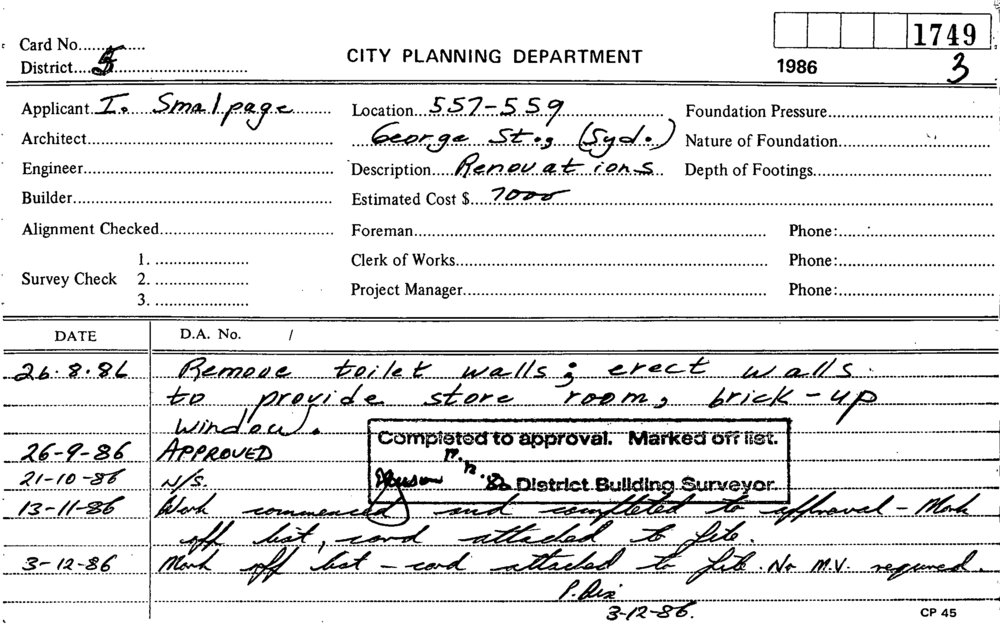 1749
Card No.
District 5
CITY PLANNING DEPARTMENT
1986
3
Applicant I. Smalpage
Location 557-559
Foundation Pressure
Architect
George St., (Syd.)
Nature of Foundation
Engineer
Description Renovations
Depth of Footings
Builder
Estimated Cost $ 7000
Alignment Checked
Foreman
Phone:
Survey Check
1.
2.
3.
Clerk of Works
Phone:
Project Manager
Phone:
DATE
D.A. No. /
26.8.86 Remove toilet walls; erect walls
to provide store room, brick-up
window.
Completed to approval. Marked off list.
District Building Surveyor.
26-9-86 APPROVED
21-10-86 N/S.
13-11-86 Work commenced and completed to approval - Mark
off list, card attached to file.
3-12-86 Mark off list - card attached to file. No M.V. required.
P. Dix
3-12-86.
CP 45